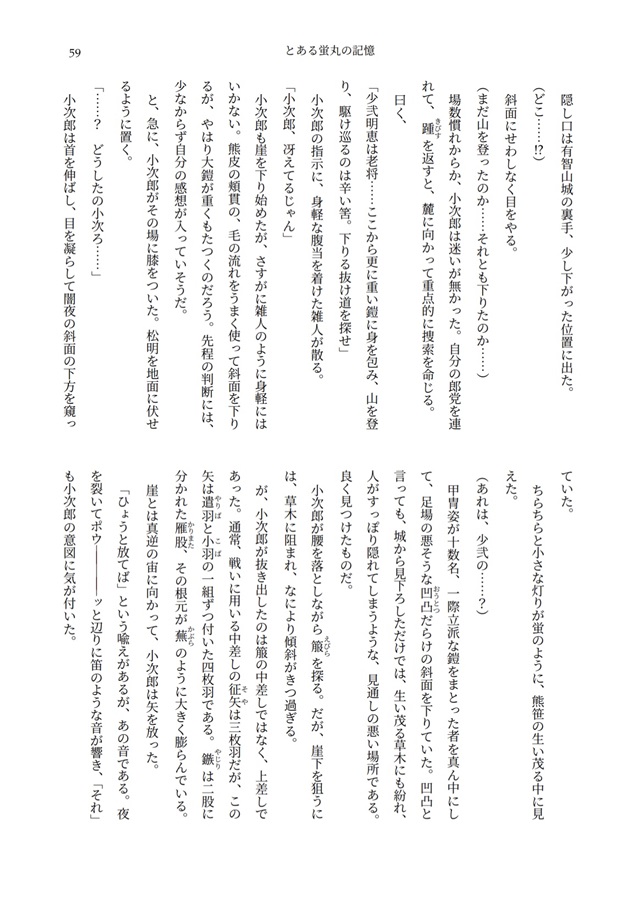 59
とある蛍丸の記憶
隠し口は有智山城の裏手、少し下がった位置に出た。
(どこ……!?)
斜面にせわしなく目をやる。
(まだ山を登ったのか……それとも下りたのか……)
場数慣れからか、小次郎は迷いが無かった。自分の郎党を連
れて、踵を返すと、麓に向かって重点的に捜索を命じる。
きびす
曰く、
「少弐明恵は老将……ここから更に重い鎧に身を包み、山を登
り、駆け巡るのは辛い筈。下りる抜け道を探せ」
小次郎の指示に、身軽な腹当を着けた雑人が散る。
「小次郎、冴えてるじゃん」
小次郎も崖を下り始めたが、さすがに雑人のように身軽には
いかない。熊皮の頬貫の、毛の流れをうまく使って斜面を下り
るが、やはり大鎧が重くもたつくのだろう。先程の判断には、
少なからず自分の感想が入っていそうだ。
と、急に、小次郎がその場に膝をついた。松明を地面に伏せ
るように置く。
「……? どうしたの小次ろ……」
小次郎は首を伸ばし、目を凝らして闇夜の斜面の下方を窺っ
ていた。
ちらちらと小さな灯りが蛍のように、熊笹の生い茂る中に見
えた。
(あれは、少弐の……?)
甲冑姿が十数名、一際立派な鎧をまとった者を真ん中にし
て、足場の悪そうな凹凸だらけの斜面を下りていた。凹凸と
おうとつ
言っても、城から見下ろしただけでは、生い茂る草木にも紛れ、
人がすっぽり隠れてしまうような、見通しの悪い場所である。
良く見つけたものだ。
小次郎が腰を落としながら箙を探る。だが、崖下を狙うに
えびら
は、草木に阻まれ、なにより傾斜がきつ過ぎる。
が、小次郎が抜き出したのは箙の中差しではなく、上差しで
あった。通常、戦いに用いる中差しの征矢は三枚羽だが、この
そや
矢は遣羽と小羽の一組ずつ付いた四枚羽である。鏃は二股に
やりば
こば
やじり
分かれた雁股、その根元が蕪のように大きく膨らんでいる。
かりまた
かぶら
崖とは真逆の宙に向かって、小次郎は矢を放った。
「ひょうと放てば」という喩えがあるが、あの音である。夜
を裂いてポウ―――ッと辺りに笛のような音が響き、「それ」
も小次郎の意図に気が付いた。